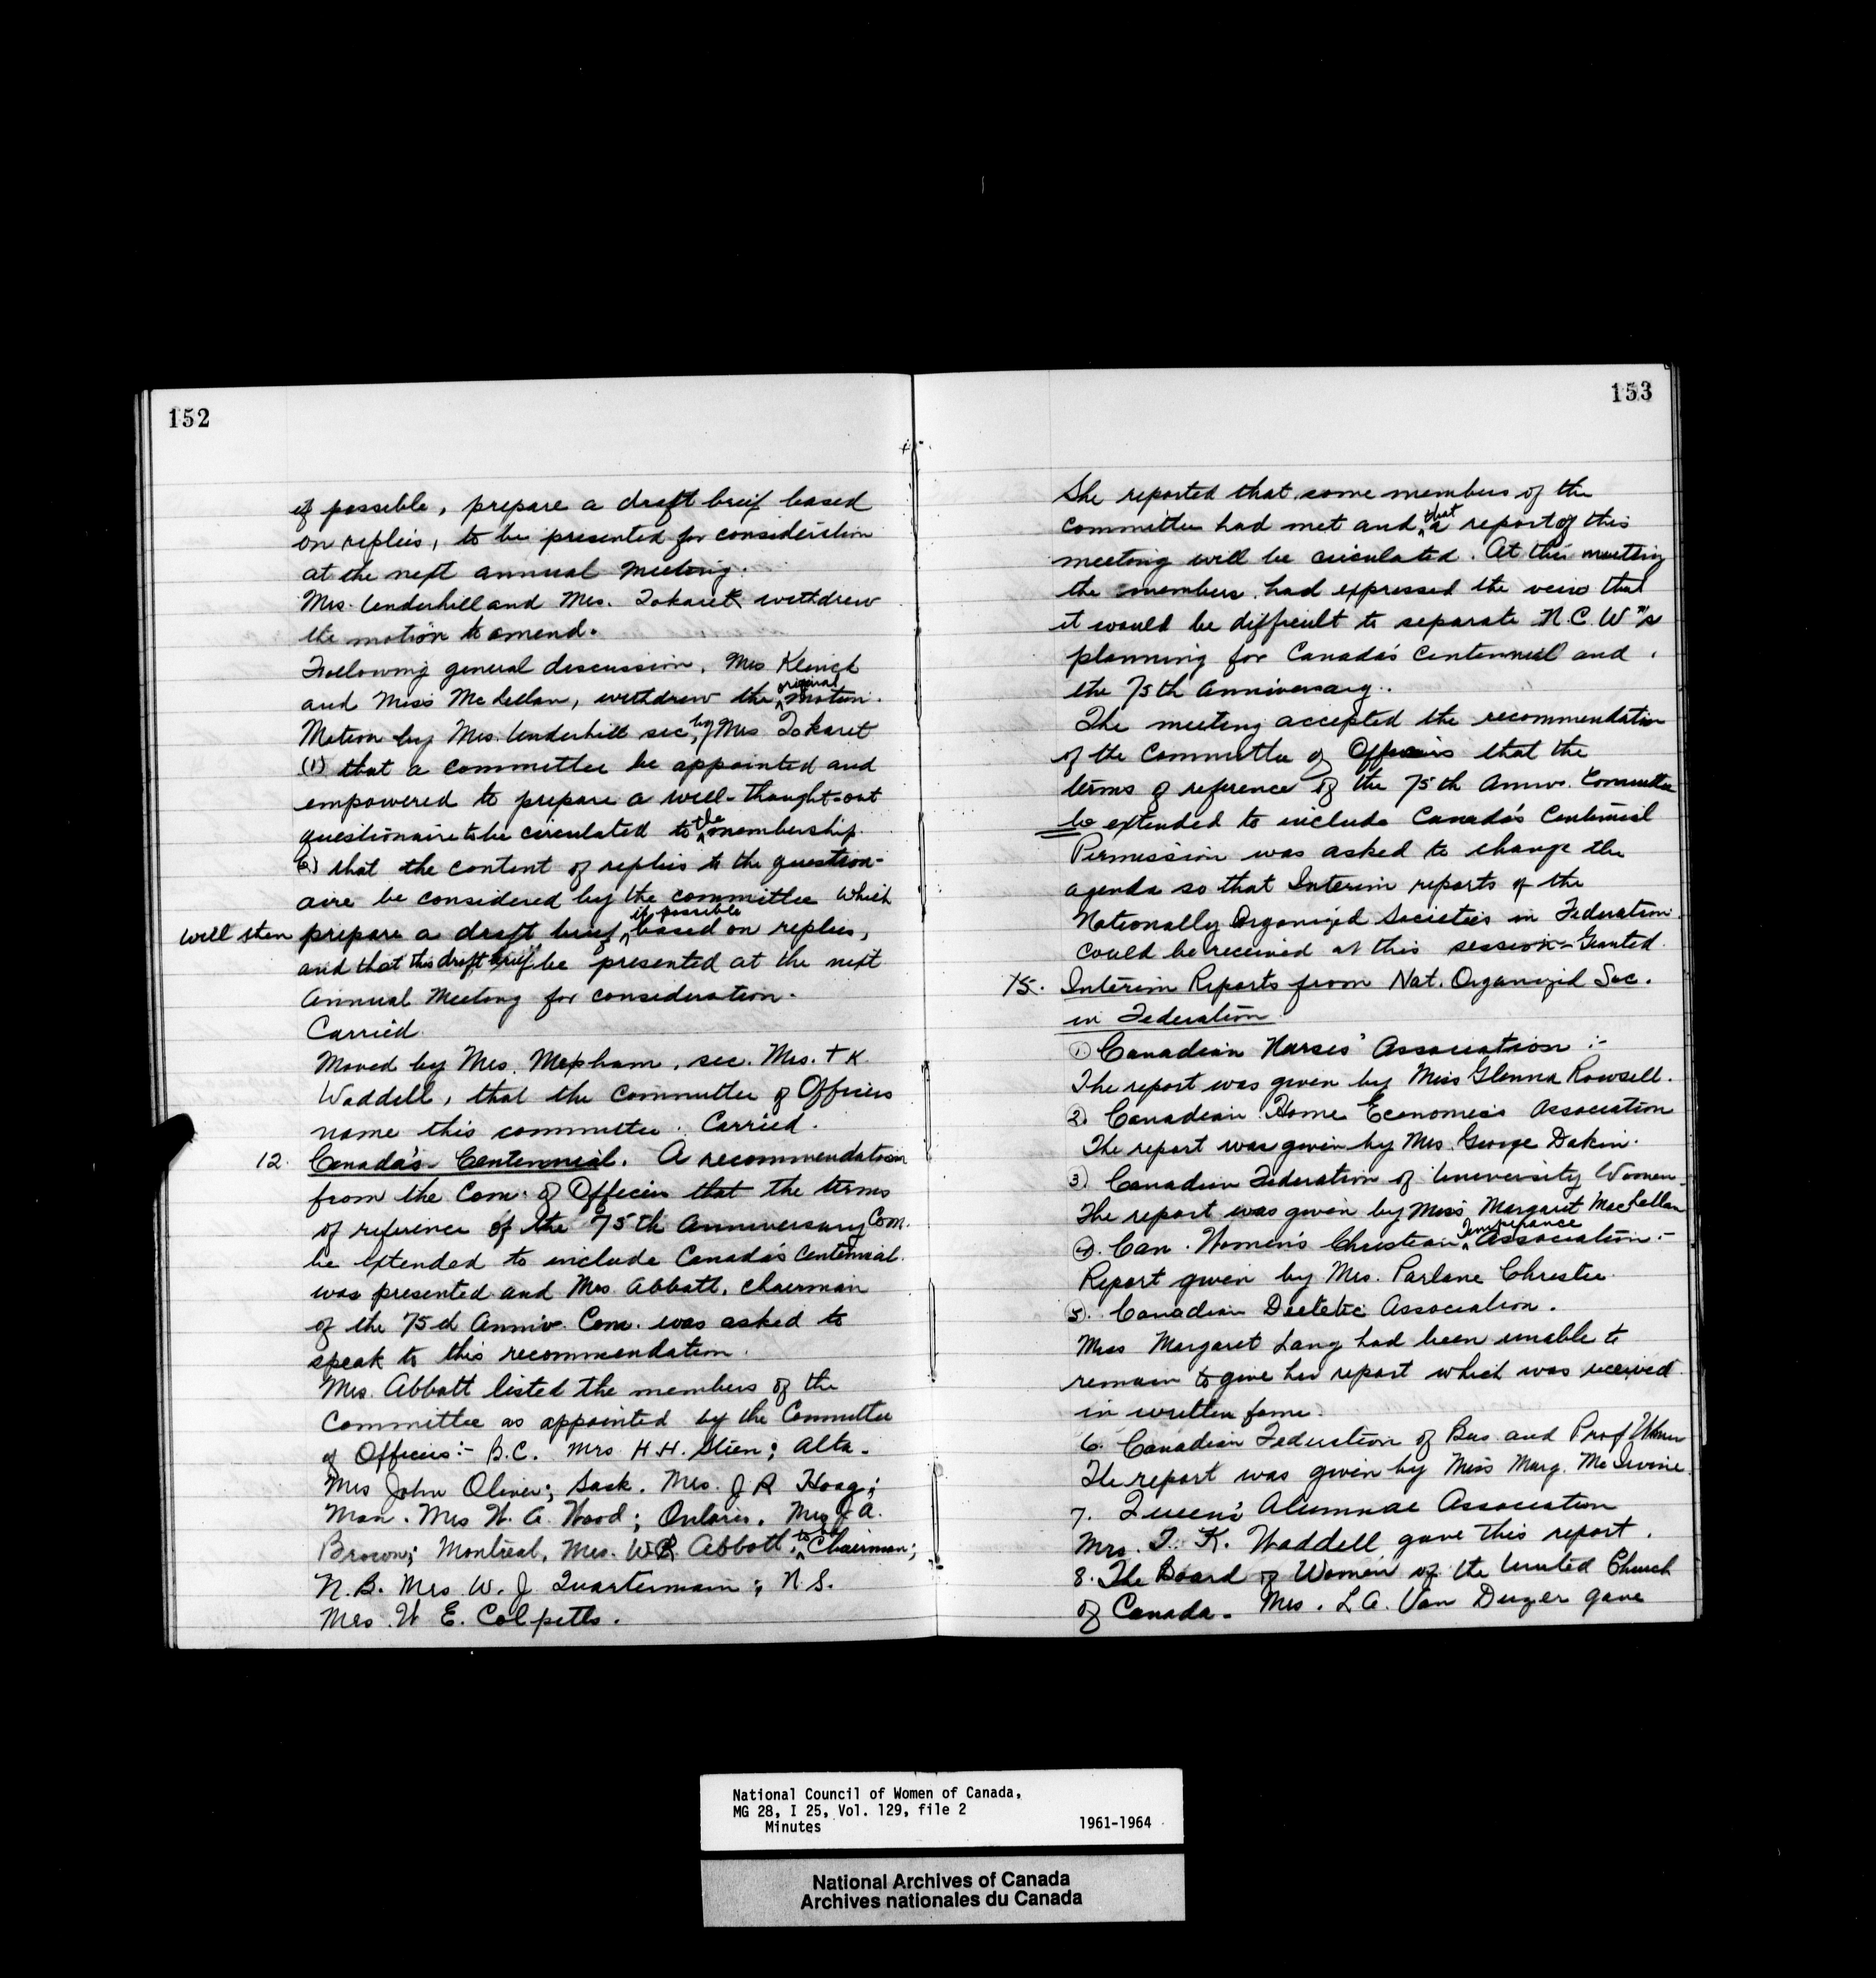 152
if possible, prepare a draft brief based
on replies, to be presented for consideration
at the next annual meeting.
Mrs. Underhill and Mrs. Tokaret withdrew
the motion to amend.
Following general discussion, Mrs
and Miss McLellan, withdrew the original motion.
Motion by Mrs. Underhill sec, by Mrs Tokaret
(1) that a committee be appointed and
empowered to prepare a well-thought-out
questionaire to be circulated to the membership.
(2) that the content of replies to the question-
aire be considered by the committee which
will then prepare a draft brief, if possible based on replies,
and that this draft brief be presented at the next
Annual Meeting for consideration.
Carried.
Moved by Mrs. Mepham, sec. Mrs. T K.
Waddell, that the Committee of Officers
name this committee. Carried.
12. Canada's Centennial. A recommendation
from the Com. of Officers that the terms
of reference of the 75th Anniversary Com.
be extended to include Canada's Centennial.
was presented and Mrs. Abbott, chairman
of the 75th Anniv. Com. was asked to
speak to this recommendation.
Mrs. Abbott listed the members of the
Committee as appointed by the Committee
of Officers:- B.C. Mrs H.H. Stien; Alta.
Mrs John Oliver; Sask. Mrs. J R Hoag;
Man. Mrs W. A. Wood; Ontario. Mrs J A.
Brown; Montreal, Mrs. W R Abbott, Chairman;
N.B. Mrs W. J. Quartermain; N.S.
Mrs. W E. Colpitts.
153
She reported that some members of the
committee had met and that a report of this
meeting will be circulated. At this meeting
the members had expressed the veiw that
it would be difficult to separate N.C.W"s
planning for Canada's Centennial and
the 75th Anniversary.
The meeting accepted the recommendation
of the Committee of Officers that the
terms of reference of the 75th Anniv. Committee
be extended to include Canada's Centennial
Permission was asked to change the
agenda so that Interim reports of the
Nationally Organized Societies in Federation
could be received at this session - Granted.
15. Interim Reports from Nat. Organized Soc.
in Federation
1. Canadian Nurses' Association :-
The report was given by Miss Glenna Rowsell.
2. Canadian Home Economics Association
The report was given by Mrs. George Dakin.
3. Canadian Federation of University Women.
The report was given by Miss Margaret MacLellan
4. Can. Women's Christian Temperance Association.-
Report given by Mrs. Parlane Christie.
5. Canadian Dietetic Association.
Miss Margaret Lang had been unable to
remain to give her report which was received
in written form.
6. Canadian Federation of Bus. and Prof Women
The report was given by Miss Marg. McIrvine.
7. Queen's Alumnae Association
Mrs. T. K. Waddell gave this report.
8. The Board of Women of the United Church
of Canada. Mrs. L.A. Van Duzer gave
National Council of Women of Canada,
MG 28, I 25, Vol. 129, file 2
Minutes 1961-1964
National Archives of Canada
Archives nationales du Canada